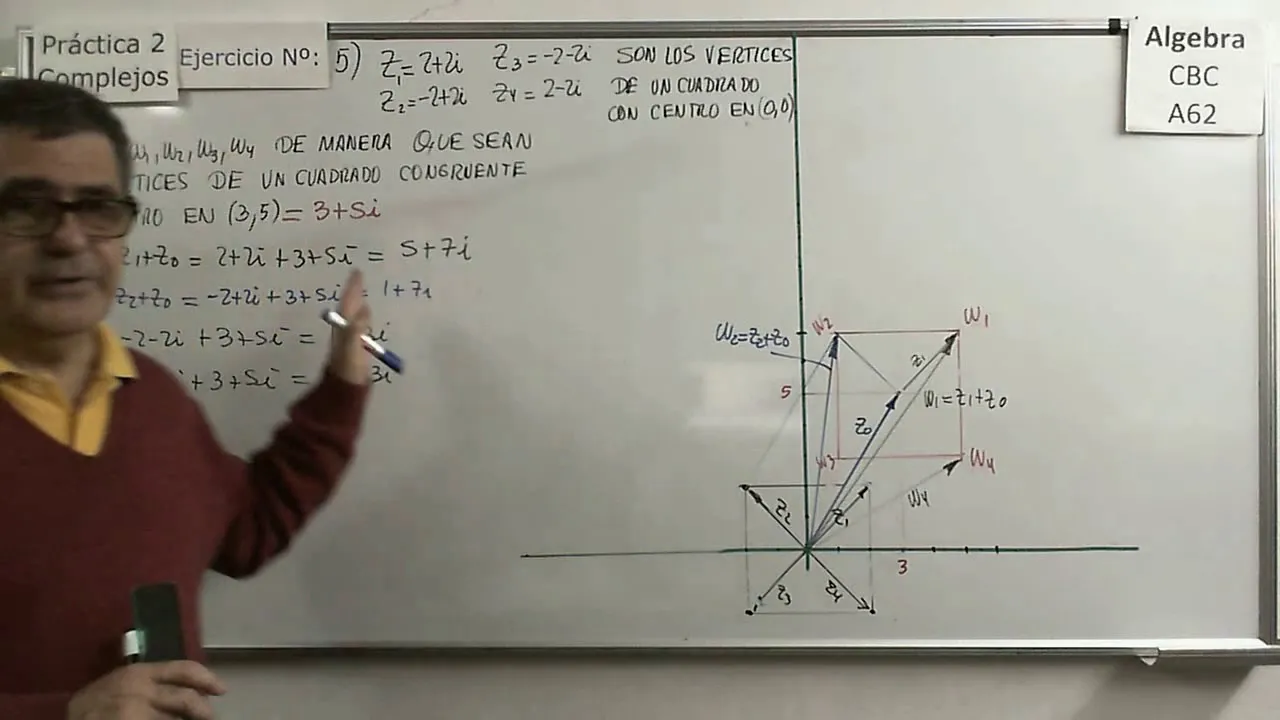 Práctica 2
Complejos
Ejercicio Nº:
Algebra
CBC
A62
5) Z1=2+2i Z3=-2-2i SON LOS VERTICES
Z2=-2+2i Z4=2-2i DE UN CUADRADO
CON CENTRO EN (0,0)
W1, W2, W3, W4 DE MANERA QUE SEAN
TICES DE UN CUADRADO CONGRUENTE
TRO EN (3,5)= 3+5i
Z1+Z0 = 2+2i +3+5i = 5+7i
Z2+Z0 = -2+2i +3+5i = 1+7i
-2-2i +3+5i =
+3+5i = 3i
W2 W1
W2=Z2+Z0
Z1
5
W1=Z1+Z0
Z0
W3 W4
W4
Z2 Z1
3
Z3 Z4